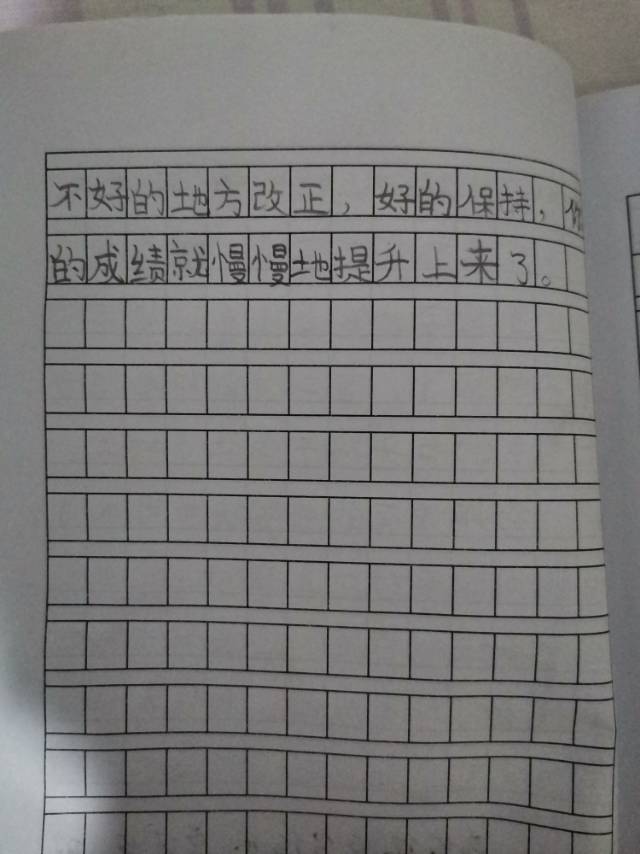 不好的地方改正，好的保持，你
的成绩就慢慢地提升上来了。